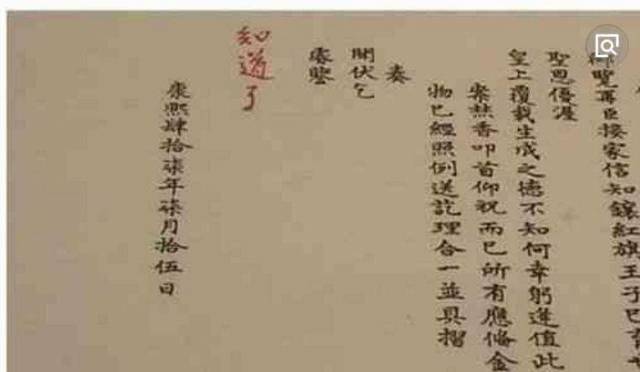 覽再臣接家信知鑲紅旗王子已育
聖恩優渥
皇上覆載生成之德不知何幸躬逢值此
案焚香叩首仰祝而已所有應俻金
物已經照例送訖理合一並具摺
奏
聞伏乞
睿鑒
知道了
康熙肆拾柒年柒月拾伍日